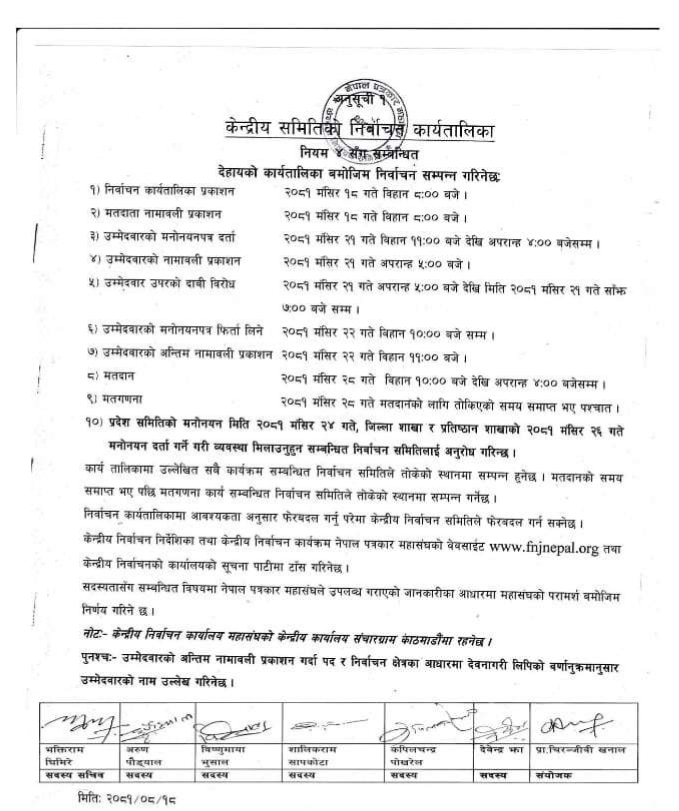 अनुसूची १
केन्द्रीय समितिको निर्वाचन कार्यतालिका
नियम ४ सँग सम्बन्धित
देहायको कार्यतालिका बमोजिम निर्वाचन सम्पन्न गरिनेछः
१) निर्वाचन कार्यतालिका प्रकाशन २०८१ मंसिर १८ गते विहान ८:०० बजे ।
२) मतदाता नामावली प्रकाशन २०८१ मंसिर १८ गते विहान ८:०० बजे ।
३) उम्मेदवारको मनोनयनपत्र दर्ता २०८१ मंसिर २१ गते विहान ११:०० बजे देखि अपरान्ह ४:०० बजेसम्म ।
४) उम्मेदवारको नामावली प्रकाशन २०८१ मंसिर २१ गते अपरान्ह ५:०० बजे ।
५) उम्मेदवार उपरको दावी विरोध २०८१ मंसिर २१ गते अपरान्ह ५:०० बजे देखि मिति २०८१ मंसिर २१ गते साँझ
७:०० बजे सम्म ।
६) उम्मेदवारको मनोनयनपत्र फिर्ता लिने २०८१ मंसिर २२ गते विहान १०:०० बजे सम्म ।
७) उम्मेदवारको अन्तिम नामावली प्रकाशन २०८१ मंसिर २२ गते विहान ११:०० बजे ।
८) मतदान २०८१ मंसिर २८ गते विहान १०:०० बजे देखि अपरान्ह ४:०० बजेसम्म ।
९) मतगणना २०८१ मंसिर २८ गते मतदानको लागि तोकिएको समय समाप्त भए पश्चात ।
१०) प्रदेश समितिको मनोनयन मिति २०८१ मंसिर २४ गते, जिल्ला शाखा र प्रतिष्ठान शाखाको २०८१ मंसिर २६ गते
मनोनयन दर्ता गर्ने गरी व्यवस्था मिलाउनुहुन सम्बन्धित निर्वाचन समितिलाई अनुरोध गरिन्छ ।
कार्य तालिकामा उल्लेखित सवै कार्यक्रम सम्बन्धित निर्वाचन समितिले तोकेको स्थानमा सम्पन्न हुनेछ । मतदानको समय
समाप्त भए पछि मतगणना कार्य सम्बन्धित निर्वाचन समितिले तोकेको स्थानमा सम्पन्न गर्नेछ ।
निर्वाचन कार्यतालिकामा आवश्यकता अनुसार फेरबदल गर्नु परेमा केन्द्रीय निर्वाचन समितिले फेरबदल गर्न सक्नेछ ।
केन्द्रीय निर्वाचन निर्देशिका तथा केन्द्रीय निर्वाचन कार्यक्रम नेपाल पत्रकार महासंघको वेवसाईट www.fnjnepal.org तथा
केन्द्रीय निर्वाचनको कार्यालयको सूचना पाटीमा टाँस गरिनेछ ।
सदस्यतासँग सम्बन्धित विषयमा नेपाल पत्रकार महासंघले उपलब्ध गराएको जानकारीका आधारमा महासंघको परामर्श बमोजिम
निर्णय गरिने छ ।
नोटः- केन्द्रीय निर्वाचन कार्यालय महासंघको केन्द्रीय कार्यालय संचारग्राम काठमाडौंमा रहनेछ ।
पुनश्चः- उम्मेदवारको अन्तिम नामावली प्रकाशन गर्दा पद र निर्वाचन क्षेत्रका आधारमा देवनागरी लिपिको वर्णानुक्रमानुसार
उम्मेदवारको नाम उल्लेख गरिनेछ ।
भक्तिराम अरुण विष्णुमाया शालिकराम कपिलचन्द्र देवेन्द्र झा प्रा.चिरञ्जीवी खनाल
घिमिरे पौड्याल भुसाल सापकोटा पोखरेल
सदस्य सचिव सदस्य सदस्य सदस्य सदस्य सदस्य संयोजक
मितिः २०८१/०८/१८